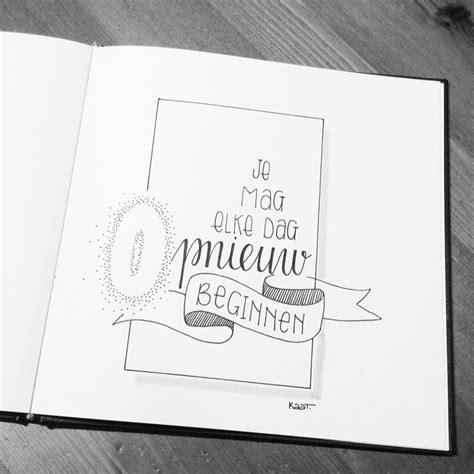 JE
MAG
ELKE DAG
Opnieuw
BEGINNEN
KAAT.